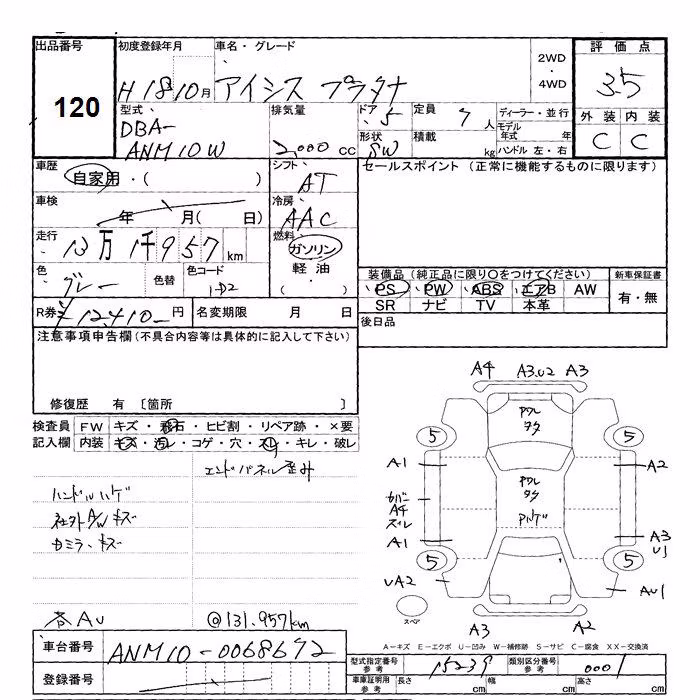 出品番号 初度登録年月 車名・グレード 2WD・4WD 評価点
120 H18 10月 アイシス プラタナ 3.5
型式 排気量 ドア 5 定員 7人 ディーラー・並行 外装 内装
DBA-ANM10W 2,000cc 形状 SW 積載 kg モデル年式 年 ハンドル 左・右 C C
車歴 自家用・( ) シフト AT セールスポイント (正常に機能するものに限ります)
車検 年 月( 日) 冷房 AAC
走行 13万1千957km 燃料 ガソリン
色 グレー 色替 色コード 1D2 軽油 ・( )
装備品(純正品に限り○をつけてください) 新車保証書
・PS ・PW ・ABS ・エアB AW 有・無
SR ナビ TV 本革
R券 ¥12,410- 円 名変期限 月 日 後日品
注意事項申告欄(不具合内容等は具体的に記入して下さい)
修復歴 有 [箇所 ]
検査員 FW キズ・飛石・ヒビ割・リペア跡・×要
記入欄 内装 キズ・汚レ・コゲ・穴・スレ・キレ・破レ
エンドパネル歪み
ハンドルハゲ
社外A/Wキズ
カミラーキズ
各AU @131,957km
A4 A3.U2 A3
PカルタタPカルタタPハゲ
5 5
A1 A2
カバーA4ズレ
A1 A3 U1
5 5
UA2 AU1
スペア
A3 A2
A-キズ E-エクボ U-凹み W-補修跡 S-サビ C-腐食 XX-交換済
車台番号 ANM10-0068692
登録番号
型式指定番号 参考 15239 類別区分番号 参考 0001
車庫証明用 参考 長さ cm 幅 cm 高さ cm